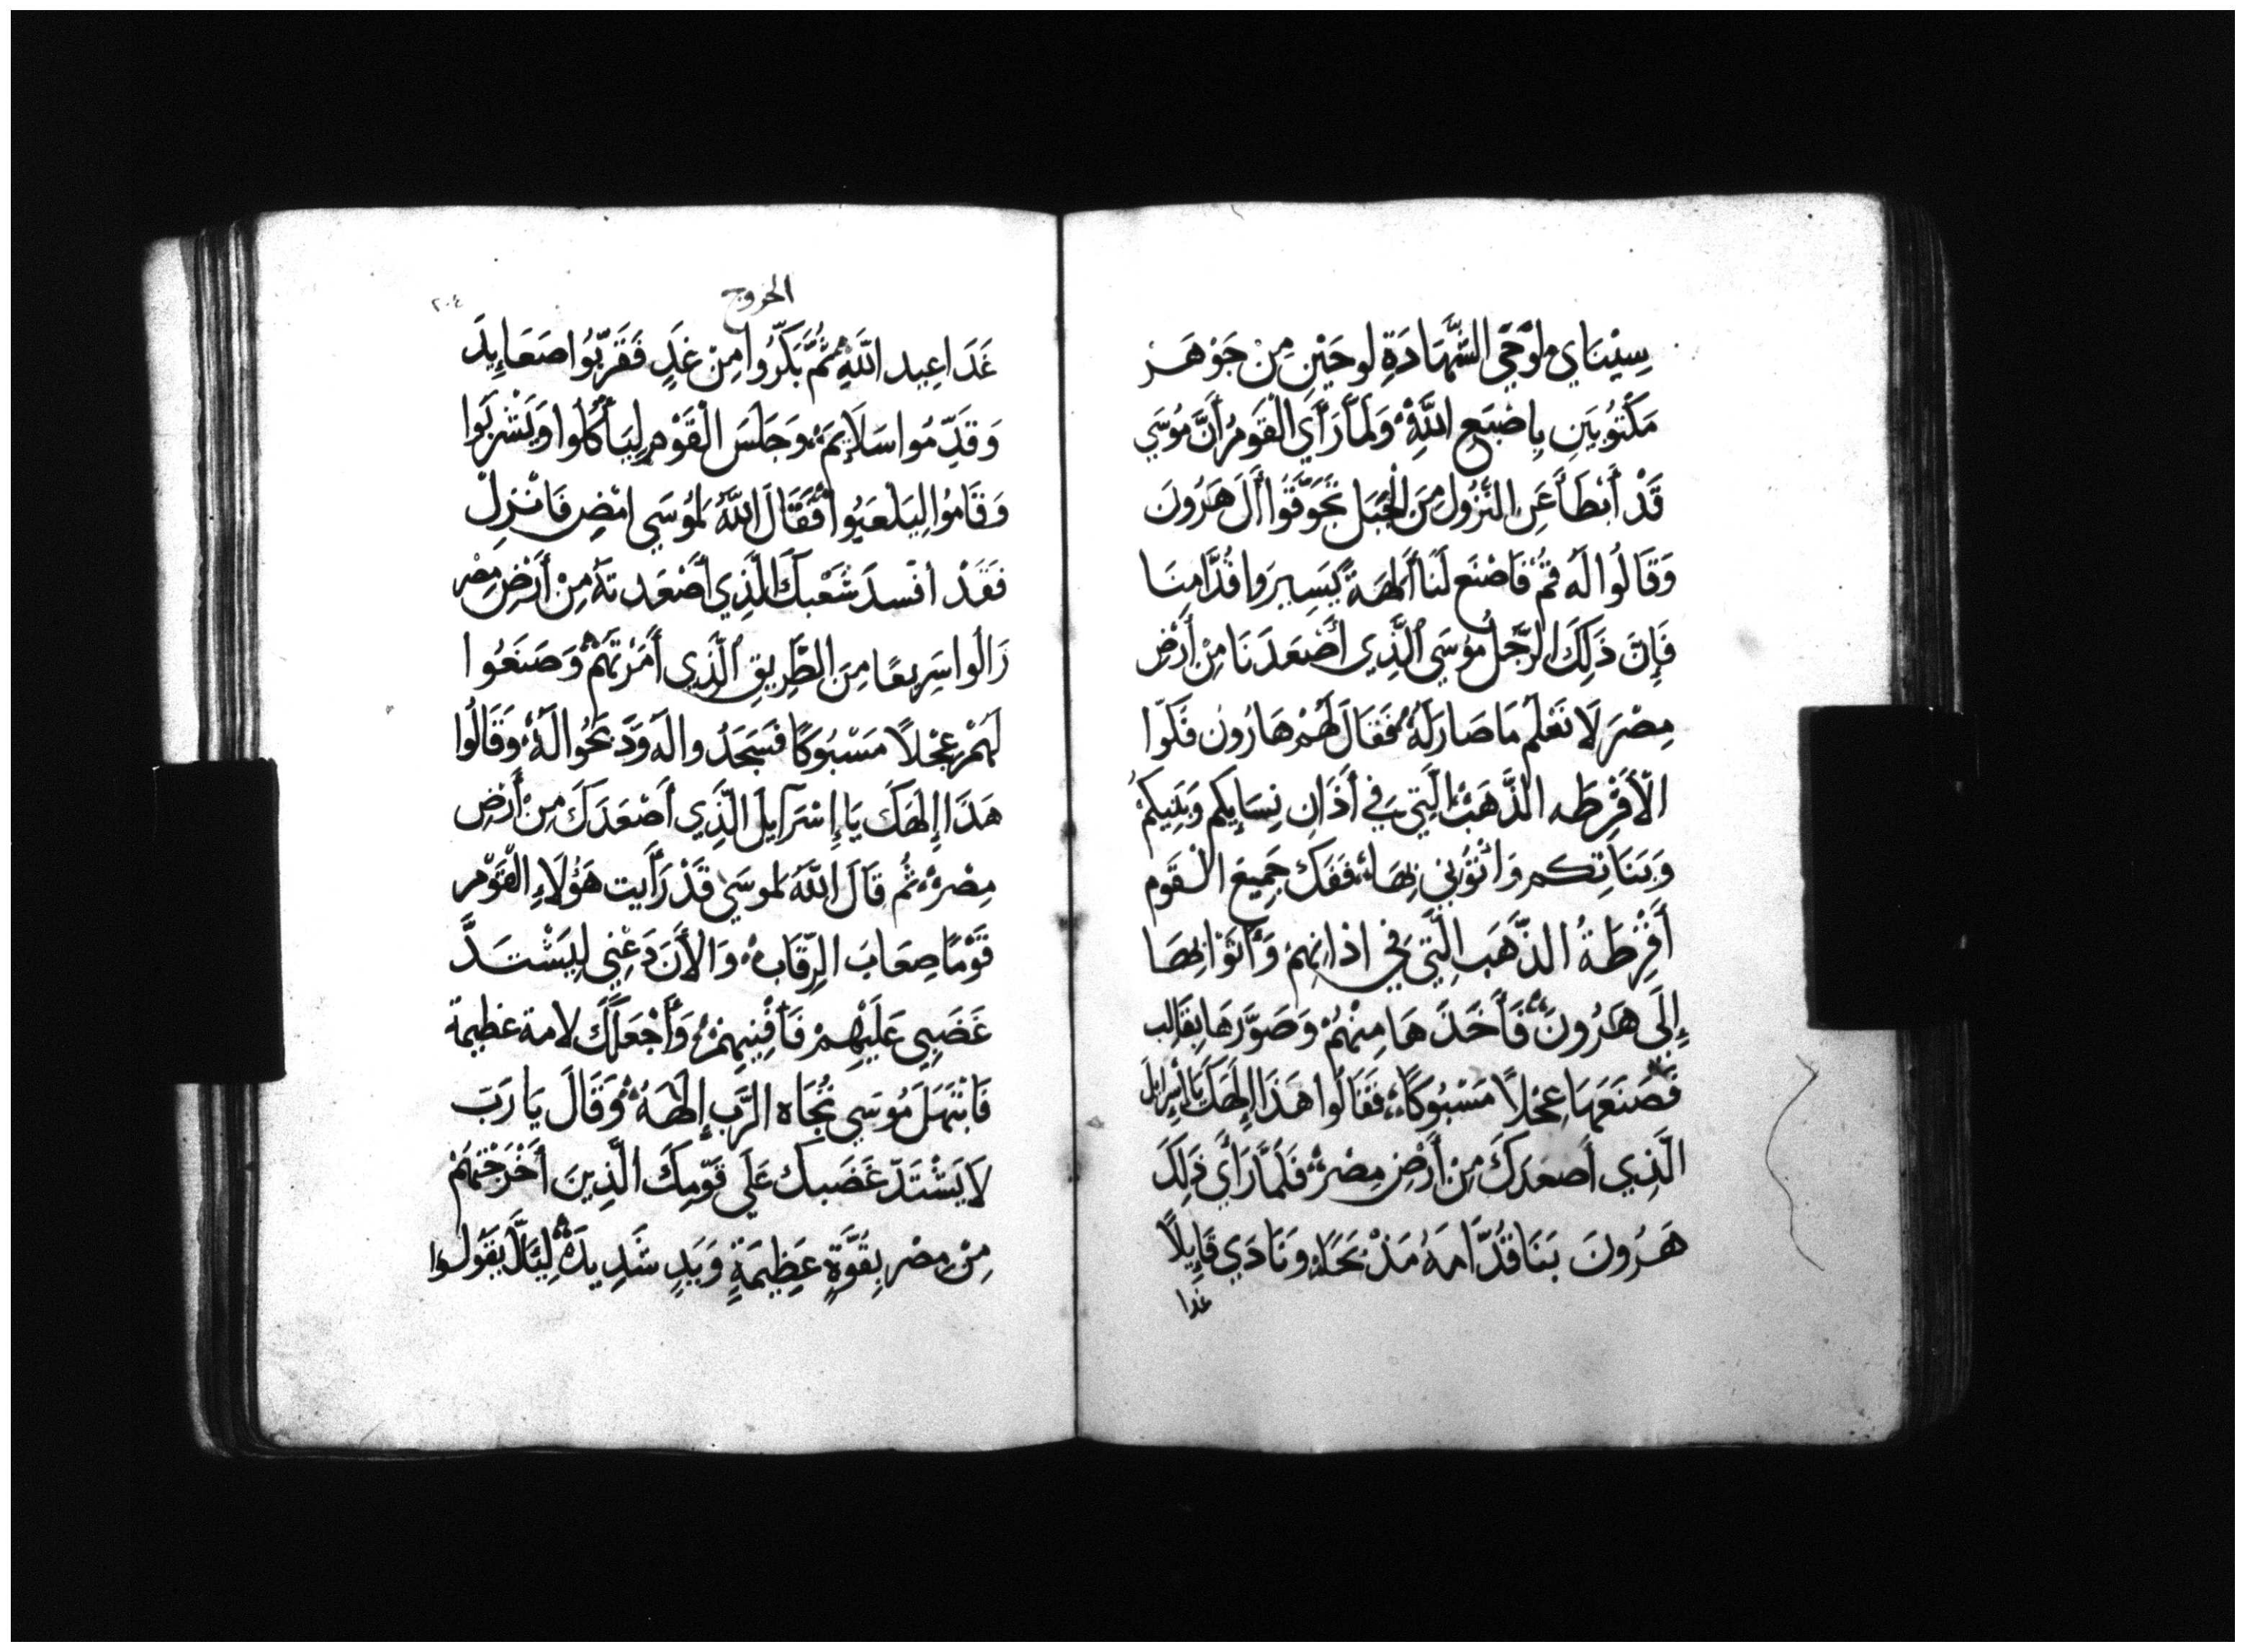 سِيْنَاي لَوْحَي الشَّهَادَةِ لوحَيْنِ مِنْ جَوْهَر
مَكْتُوبَيَنِ بِاِصْبَعِ اللَّهِ وَلَمَّا رَأَي الْقَوَمُ أَنَّ مُوسَي
قَدْ أَبْطَأَ عَنِ النُّزُولِ مِنَ الْجَبَلِ تَجَوَّقُوا أَلَ هَرُونَ
وَقَالُوا لَه قُمْ فَاصْنَع لَنَا أَلِهَةً يَسِيرَوا قُدَّامِنَا
فَإِنَّ ذَلِكَ الرَّجُلَ مُوسَي الَّذِي أَصْعَدَنَا مِنْ أَرْضِ
مِصْرَ لَا نَعْلَمُ مَا صَارَ لَهُ فَقَالَ لَهُمْ هَارُون فَكّوا
الْأَقْرِطَه الذَّهَبْ الَّتِي فِي أَذَانِ نِسَايِكُم وَبَنِيكُمْ
وَبَنَاتِكم وَاتُونِي بِهَا فَفَكَ جَمِيعَ الْقَوم
أَقْرِطَةُ الذَّهَبِ الَّتِي فِي اذانِهِمْ وَأَتَوْا بِهَا
إِلَى هَرُونَ فَأَخَذَهَا مِنْهُمْ وَصَوَّرَهَا بِقَالِب
فَصَنَعَهَا عِجْلاً مَسْبُوكًا فَقَالُوا هَذَا إِلَهَكَ يَا اسْرايلَ
الَّذِي أَصعَدَكَ مِنْ أَرْضِ مِصْرَ فَلَمَّا رَأَي ذَلِكَ
هَرُونَ بَنَا قُدَّامَهُ مَذْبَحًا وَنَادَي قَايِلًا
غدا
الخروج
٢٠٤
غَدًا عِيد اللَّهِ ثُمَّ بَكَّرُوا مِنْ غَدٍ فَقَرَّبُوا صَعَايِدَ
وَقَدَّمُوا سَلَايِمَ وَجَلَسَ الْقَوْمِ لِيَأْكُلُوا وَيَشْرَبَوا
وَقَامُوا لِيَلْعَبُوا فَقَالَ اللَّهُ لِمُوسَي امْضِ فَانْزِلْ
فَقَدْ افْسدَ شَعْبكَ الَّذِي أَصْعَدتهُ مِنْ أَرْضِ مِصْر
زَالُوا سَرِيعًا مِنَ الطَّرِيقِ الَّذِي أَمَرْتَهُمْ وَصَنَعُوا
لَهُمْ عِجْلاً مَسْبُوكًا فَسَجَدُوا لَه وَذَبَحُوا لَهُ وَقَالُوا
هَذَا إِلَهَكَ يَا إِسْرَآيلَ الَّذِي أَصْعَدَكَ مِنْ أَرْضِ
مِصْرَ ثُم قَالَ اللَّهُ لموسَي قَدْ رَأَيت هَؤُلَاءِ الْقَوْمْ
قَوْمًا صِعَابَ الرِّقَابِ وَالْأَنَ دَعْنِي لِيَشْتَدَّ
غَضَبِي عَلَيْهِمْ فَأَفْنِيهِمْ وَأَجْعَلَكَ لامة عظيمة
فَابْتَهَلَ مُوسَي تُجَاه الرَّبِ إِلَهَهُ وَقَالَ يَا رَبّ
لَا يَشْتَدّ غَضَبكَ عَلَي قَوْمِكَ الَّذِينَ أَخْرَجْتَهُمْ
مِنْ مِصْر بِقُوَّةٍ عَظِيمَةٍ وَيَدٍ شَدِيدَةٍ لِيَلَّا يَقُولُوا